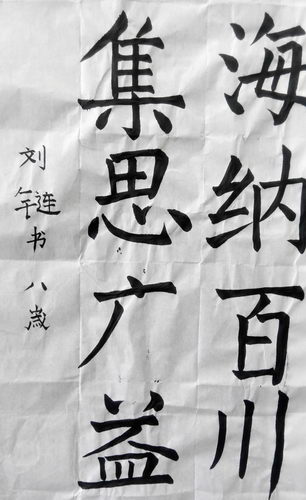 海纳百川
集思广益
刘连书八岁